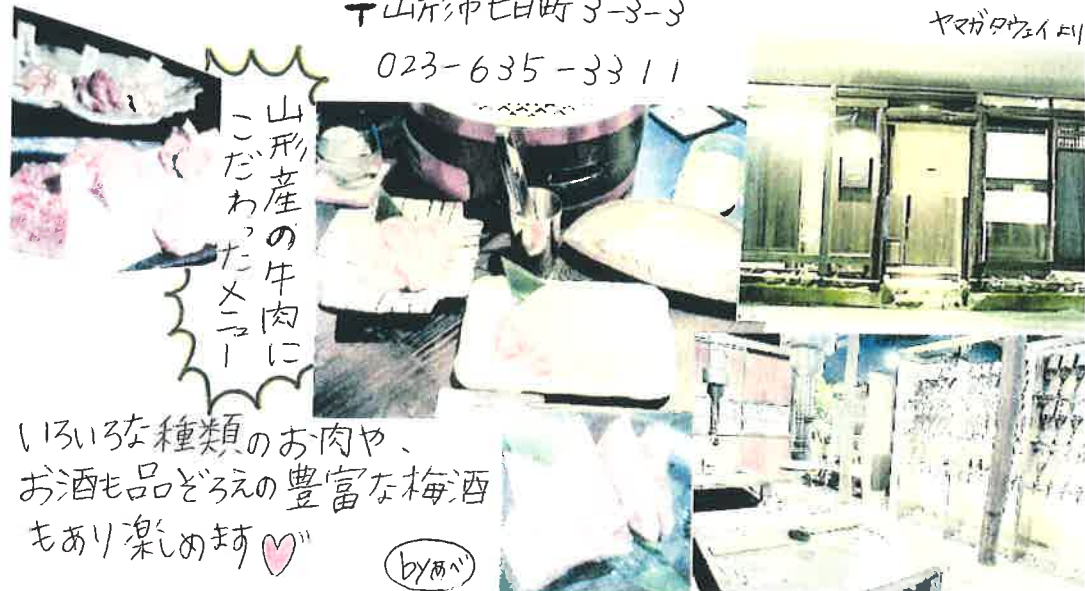 〒山形市七日町3-3-3
023-635-3311
ヤマガタウェイより
山形産の牛肉に
こだわったメニュー
いろいろな種類のお肉や、
お酒も品ぞろえの豊富な梅酒
もあり楽しめます
byあべ